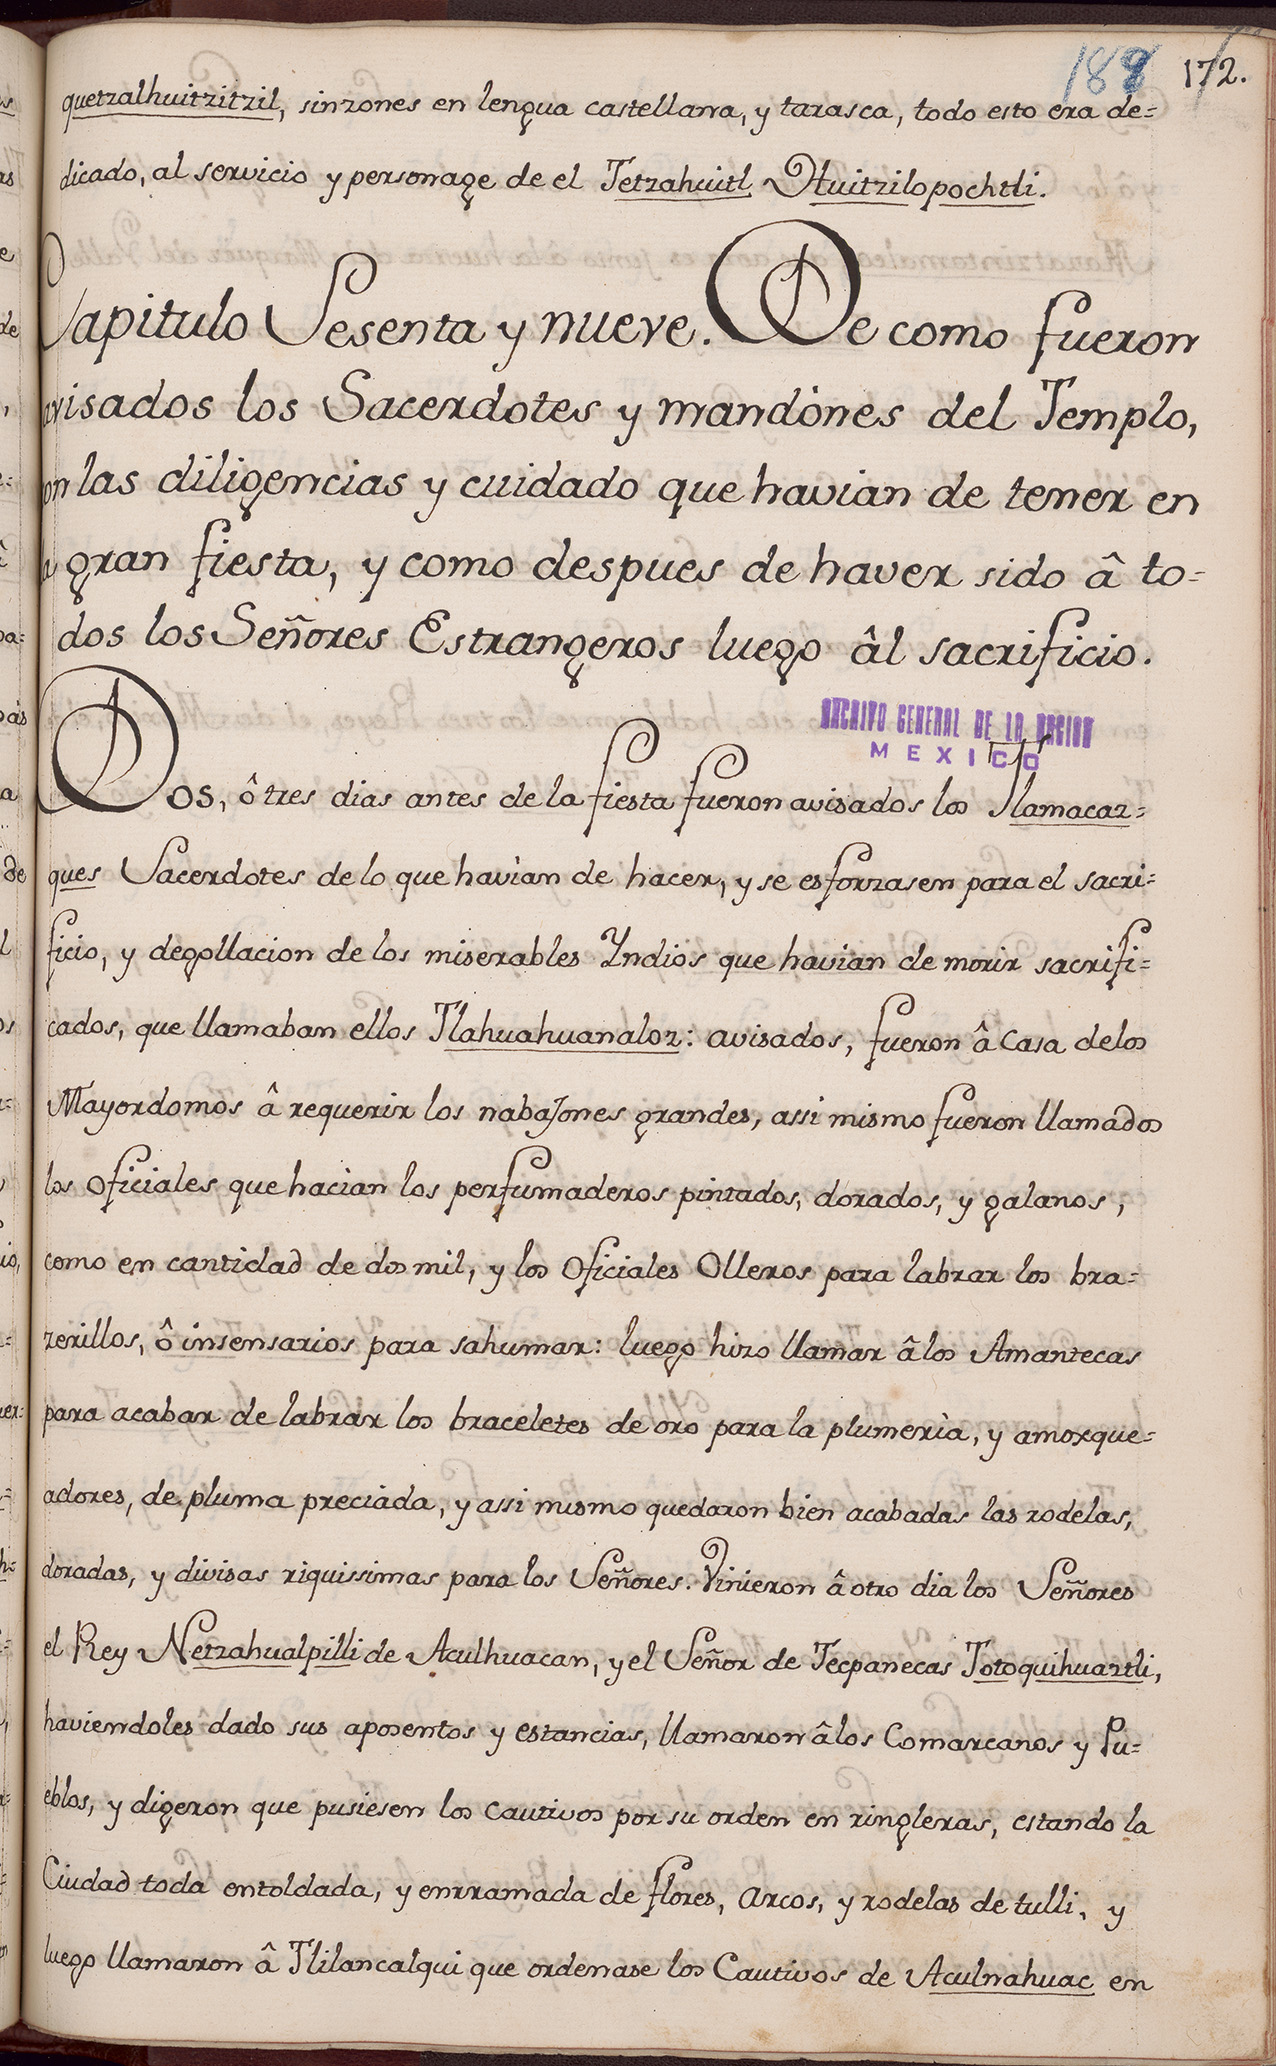 188 172.
quetzalhuitzitzil, sinzones en lengua castellana, y tarasca, todo esto era de=
dicado, al servicio y personage de el Tetzahuitl Huitzilopochtli.
Capitulo Sesenta y nueve. De como fueron
avisados los Sacerdotes y mandònes del Templo,
on las diligencias y cuidado que havian de tener en
a gran fiesta, y como despues de haver sido â to=
dos los Señores Estrangeros luego âl sacrificio.
ARCHIVO GENERAL DE LA NACION
MEXICO
Dos, ô tres dias antes de la fiesta fueron avisados los Tlamacaz=
ques Sacerdotes de lo que havian de hacer, y se esforzasen para el sacri=
ficio, y degollacion de los miserables Yndios que havian de morir sacrifi=
cados, que llamaban ellos Tlahuahuanaloz: avisados, fueron â casa de los
Mayordomos â requerir los nabajones grandes, assi mismo fueron llamados
los oficiales que hacian los perfumaderos pintados, dorados, y galanos,
como en cantidad de dos mil, y los Oficiales Olleros para labrar los bra=
zerillos, ô insensarios para sahumar: luego hizo llamar â los Amantecas
para acabar de labrar los braceletes de oro para la plumerìa, y amosque=
adores, de pluma preciada, y assi mismo quedaron bien acabadas las rodelas,
doradas, y divisas riquissimas para los Señores. Vinieron â otro dia los Señores
el Rey Netzahualpilli de Aculhuacan, y el Señor de Tecpanecas Totoquihuaztli,
haviendoles dado sus aposentos y estancias, llamaron â los Comarcanos y Pu=
eblos, y digeron que pusiesen los cautivos por su orden en ringleras, estando la
Ciudad toda entoldada, y enrramada de flores, arcos, y rodelas de tulli, y
luego llamaron â Tlilancalqui que ordenase los Cautivos de Aculnahuac en